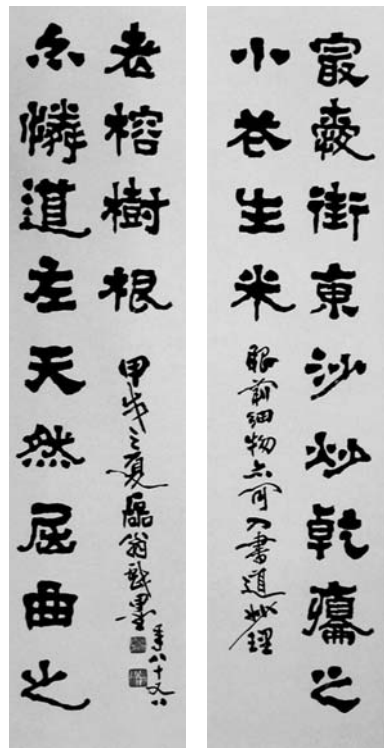 㝡愛街東沙炒乾癟之
小花生米
眼前細物亦可入書道妙理
尒憐道左天然屈曲之
老榕樹根
甲戌之夏翁戲墨
年八十又八